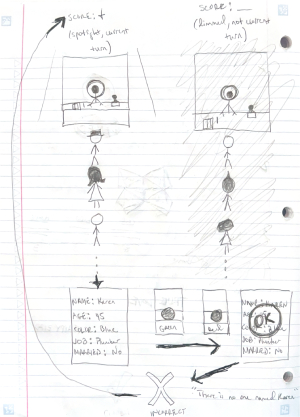 SCORE: +
(spotlight, current
turn)
SCORE: __
(dimmed, not current
turn)
NAME: Karen
AGE: 45
COLOR: Blue
JOB: Plumber
MARRIED: No
Green
Red
NAME: KAREN
OK
JOB: Plumber
MARRIED: No
"There is no one named Karen
INCORRECT